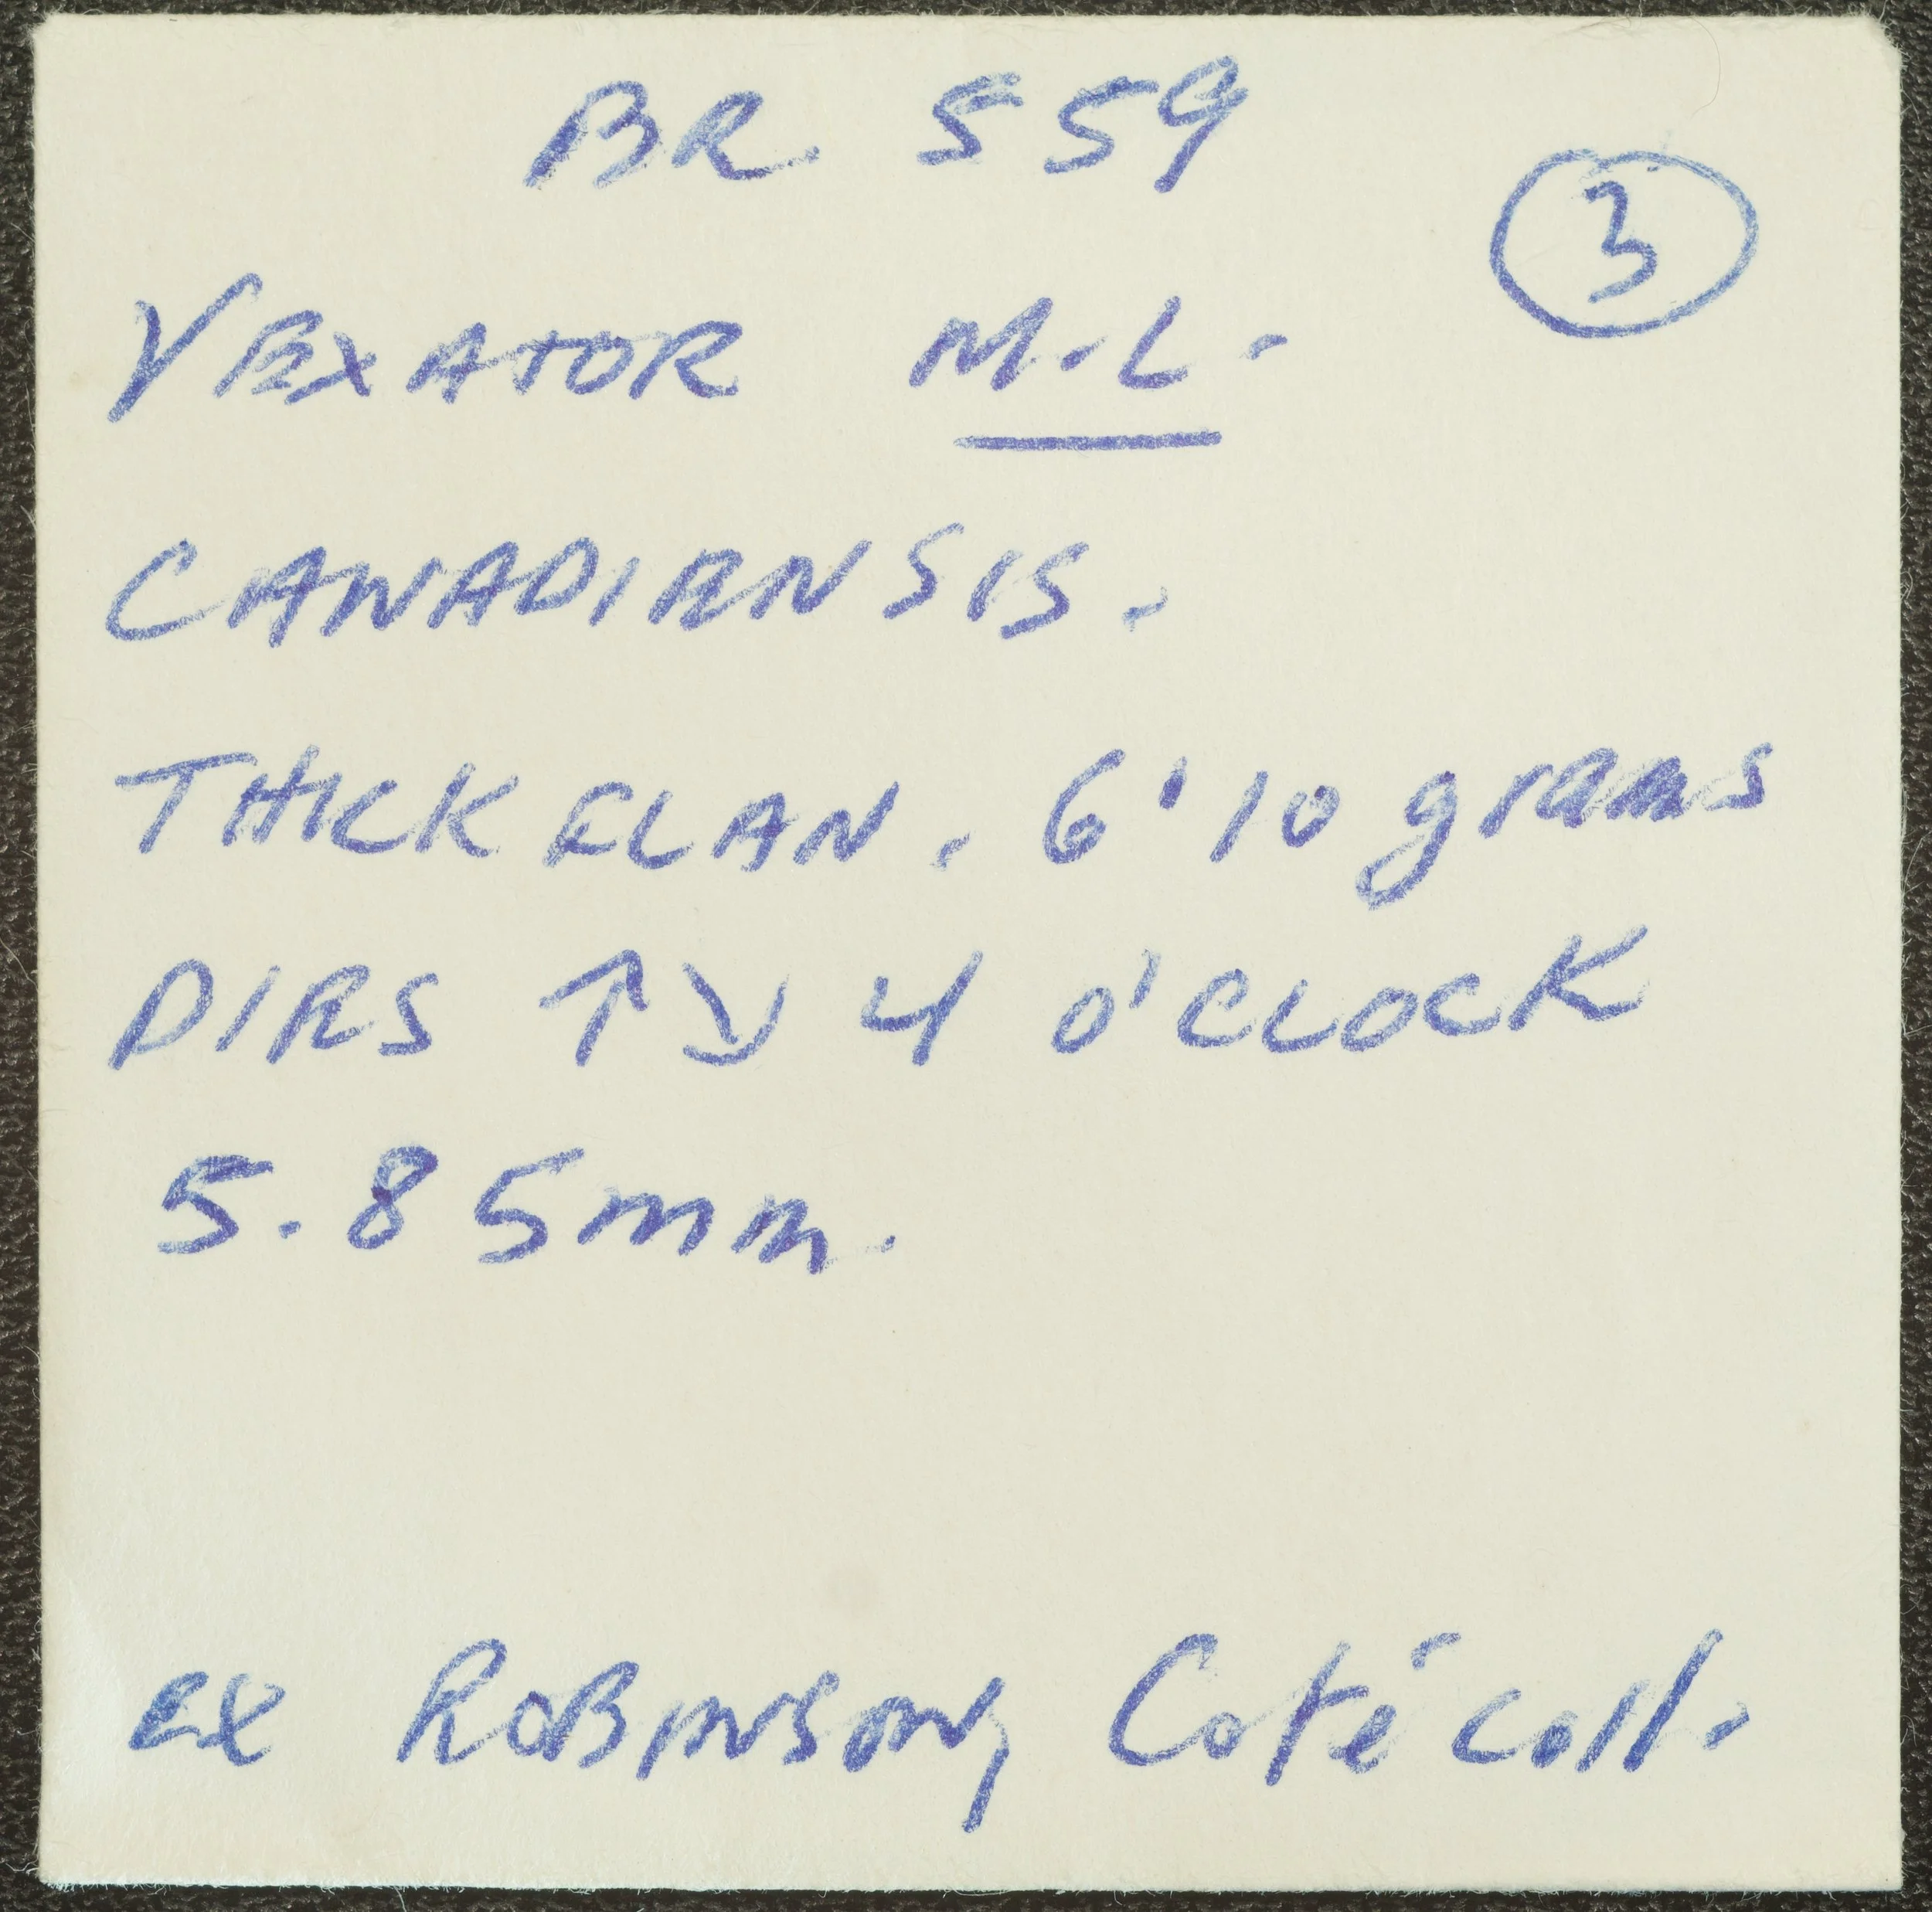 BR 559
3
VEXATOR M.L.
CANADIENSIS.
THICK FLAN. 6'10 grams
DIES ↑↘ 4 O'CLOCK
5.85mm.
ex Robinson, Coté coll.